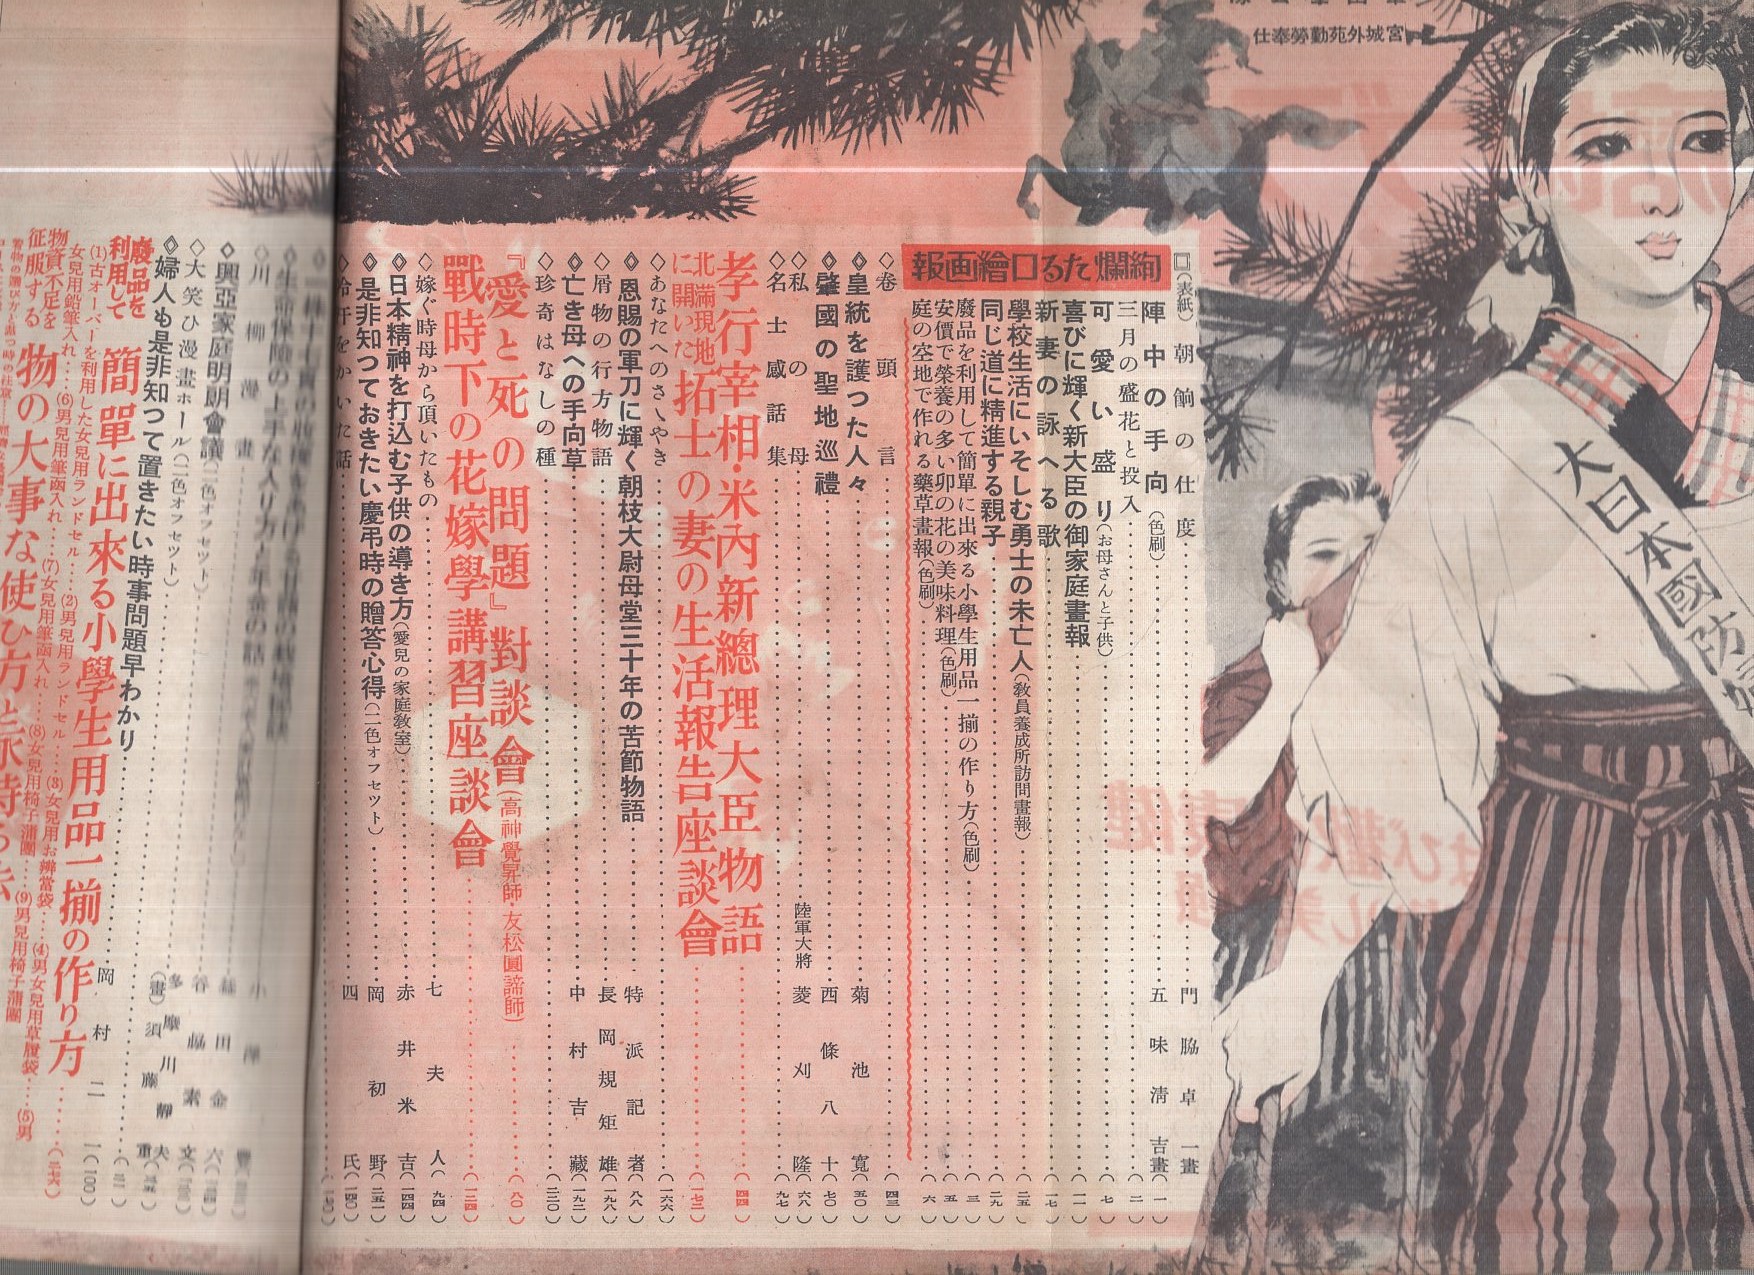 宮城外苑勤勞奉仕
大日本國防
(表紙)朝餉の仕度……門脇卓一畫
陣中の手向(色刷)……五味淸吉畫(一)
三月の盛花と投入……(二)
可愛い盛り(お母さんと子供)……(七)
喜びに輝く新大臣の御家庭畫報……(一一)
新妻の詠へる歌……(一七)
學校生活にいそしむ勇士の未亡人(敎員養成所訪問畫報)……(二五)
同じ道に精進する親子……(二九)
廢品を利用して簡單に出來る小學生用品一揃の作り方(色刷)……(三)
安價で榮養の多い卯の花の美味料理(色刷)……(五)
庭の空地で作れる藥草畫報(色刷)……(六)
絢爛たる口繪画報
◇卷頭言……(四三)
◇皇統を護つた人々……菊池寬(五〇)
◇肇國の聖地巡禮……西條八十(七〇)
◇私の母……陸軍大將 菱刈隆(六八)
◇名士感話集……(九七)
孝行宰相・米內新總理大臣物語……(四四)
北滿現地に開いた拓士の妻の生活報告座談會……(一七二)
◇あなたへのさゝやき……(一六六)
◇恩賜の軍刀に輝く朝枝大尉母堂三十年の苦節物語……特派記者(八八)
◇屑物の行方物語……長岡規矩雄(一九八)
◇亡き母への手向草……中村吉藏(一九二)
◇珍奇はなしの種……(二二〇)
『愛と死の問題』對談會(高神覺昇師・友松圓諦師)……(八〇)
戰時下の花嫁學講習座談會……(一二四)
◇嫁ぐ時母から頂いたもの……七夫人(九四)
◇日本精神を打込む子供の導き方(愛兒の家庭敎室)……赤井米吉(一四四)
◇是非知つておきたい慶弔時の贈答心得(二色オフセツト)……岡初野(二五一)
◇冷汗をかいた話……四氏(一四〇)
◇生命保險の上手な入り方と年金の話
◇川柳漫畫……小
◇興亞家庭明朗會議(二色オフセツト)……益田金六
◇大笑ひ漫畫ホール(二色オフセツト)……谷脇素文
◇婦人も是非知つて置きたい時事問題早わかり……多摩川靜夫 (畫)須藤重
廢品を利用して簡單に出來る小學生用品一揃の作り方……岡村二一(一〇〇)
(1)古オーバーを利用した女兒用ランドセル……(2)男兒用ランドセル……(3)女兒用お辨當袋……(4)男女兒用草履袋……(5)男
女兒用鉛筆入れ……(6)男兒用筆函入れ……(7)女兒用筆函入れ……(8)女兒用椅子蒲團……(9)男兒用椅子蒲團
物資不足を征服する物の大事な使ひ方と